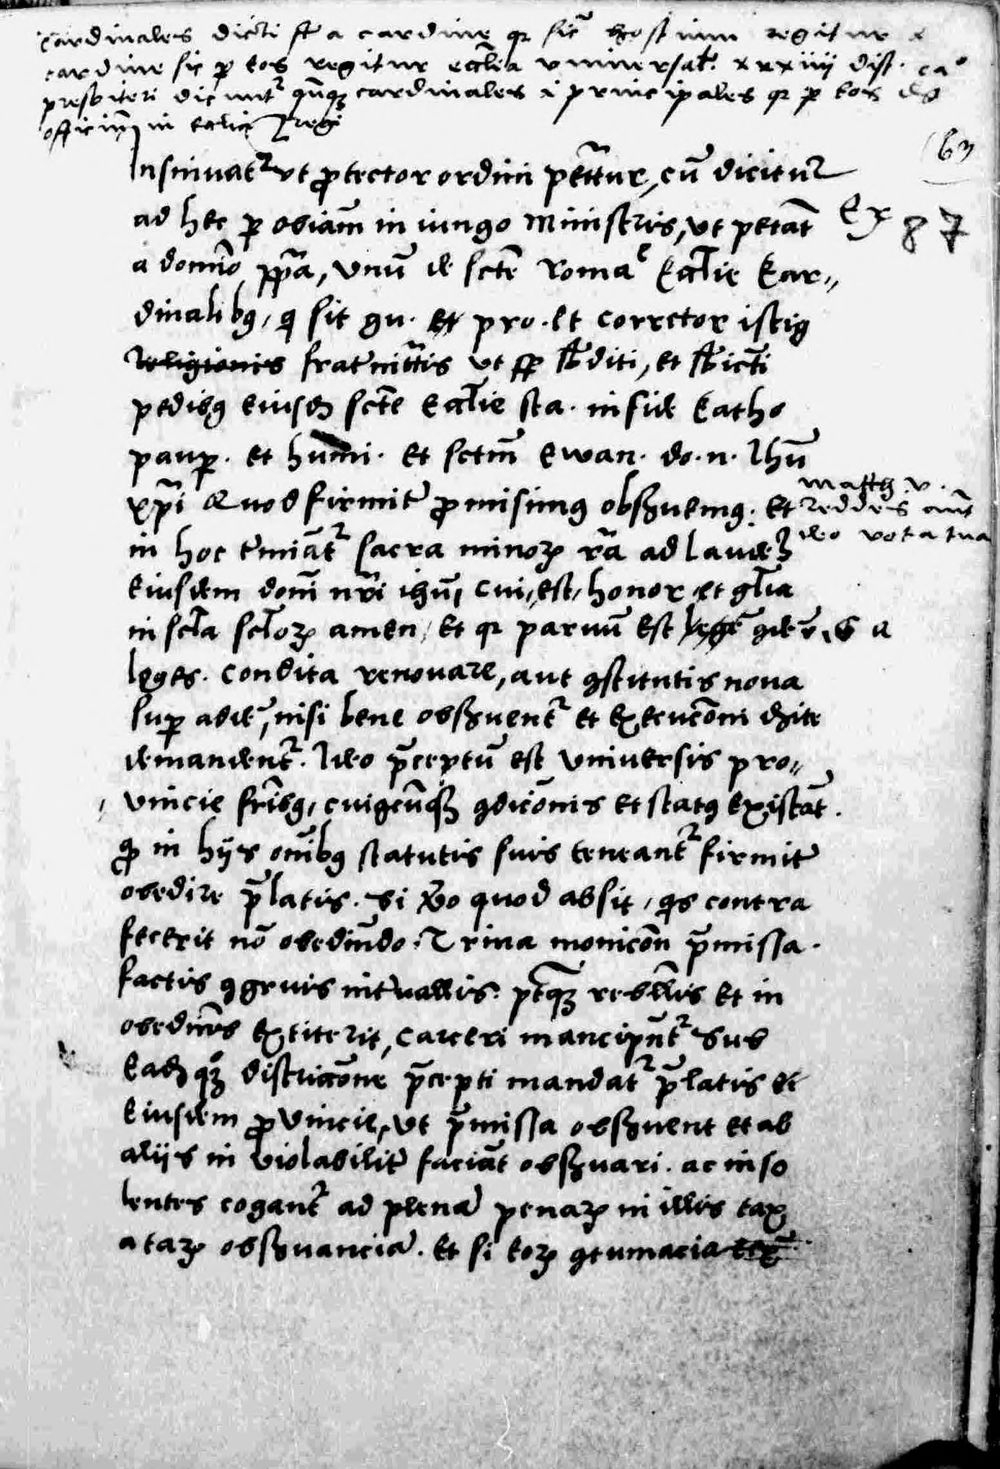 Cardinales dicti st a cardine qr sic hostium regitur a
cardine sic p eos regitur ecclia vniuersal. xxxiiij dist. ca°
presbiteri dicuntr qnqz cardinales i principales qr p eos
officiu in ecclia regi
63
Insinuatr vt protector ordini petatur, cu dicitur
ad hec p obiam in iungo Ministris, vt petat
87
a domino ppa, vnu de scte Romae Ecclie Car„
dinalibus, qi sit gu. et pro. et corrector istius
religionis fraternitatis vt sp sbditi, et sbiecti
pedibus eiusdem scte Ecclie sta. in fide Catho
paup. et humi. et sctm Ewan. do. n. Ihu
xpi Quod firmiter promisimus obseruemus. Et
Matth v.
Reddes aut
deo vota tua
in hoc terminatr sacra minorz ra ad laudez
Eiusdem domi nri ihu, cui, est, honor et glia
in scla sclorz amen, Et qr paruu est
leges. condita renouare, aut 9stitutis nova
sup adde, nisi bene obseruentr et executoni
demandentr. Ideo preceptu est vniuersis pro„
vincie fribus, cuiuscunqz 9dicionis et status existat.
qi in hijs omibus statutis suis teneantr firmiter
obedire platis. Si vo quod absit, qis contra
fecerit no obediendo. Trina monicon pmissa.
factis 9gruis interuallis. rebellis Et in
obediens extiterit, carceri mancipentr Sub
Eadz qoz districcone pcepti mandatr platis
Eiusdem prouincie, vt pmissa obseruent et ab
alijs in violabiliter faciat obseruari. ac inso
lentes cogantr ad plena penarz in illis tax
atarz obseruancia. Et si Eorz 9tumacia